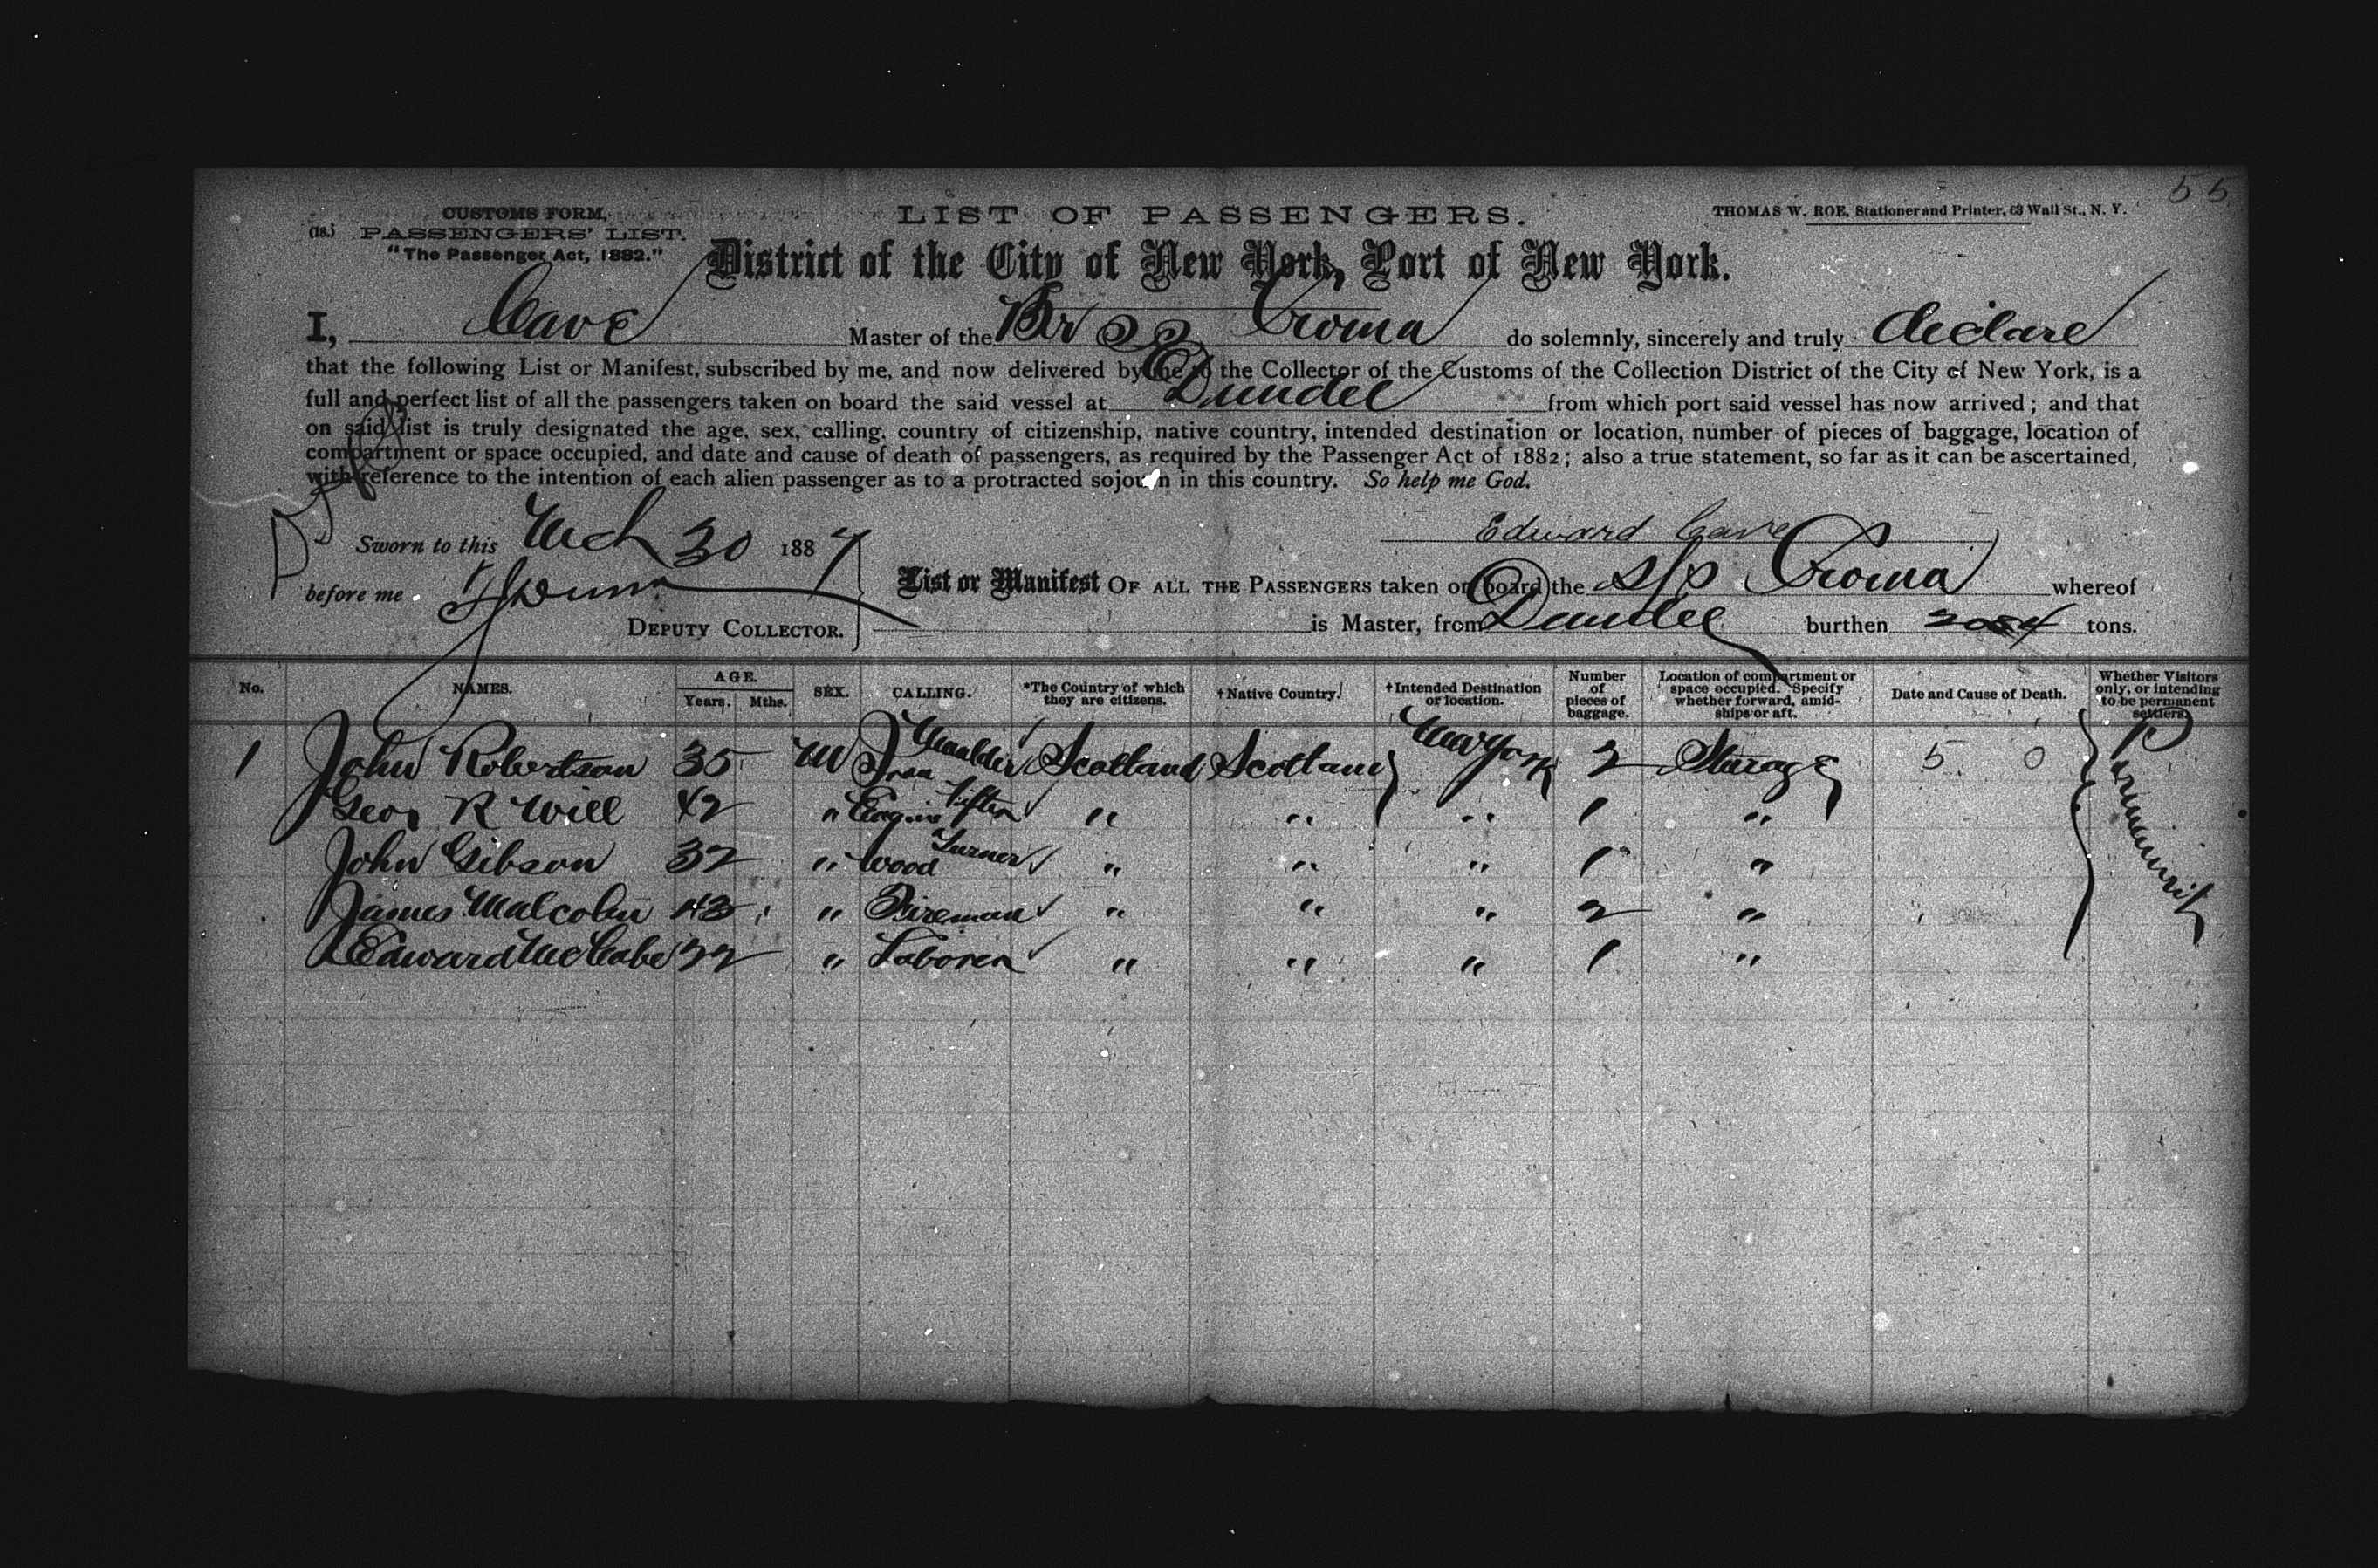 55
CUSTOMS FORM,
(18.) PASSENGERS' LIST.
"The Passenger Act, 1882."
LIST OF PASSENGERS.
THOMAS W. ROE, Stationer and Printer, 63 Wall St., N. Y.
District of the City of New York, Port of New York.
I, Cave Master of the Br SS Croma do solemnly, sincerely and truly declare
that the following List or Manifest, subscribed by me, and now delivered by me to the Collector of the Customs of the Collection District of the City of New York, is a
full and perfect list of all the passengers taken on board the said vessel at Dundee from which port said vessel has now arrived; and that
on said list is truly designated the age, sex, calling, country of citizenship, native country, intended destination or location, number of pieces of baggage, location of
compartment or space occupied, and date and cause of death of passengers, as required by the Passenger Act of 1882; also a true statement, so far as it can be ascertained,
with reference to the intention of each alien passenger as to a protracted sojourn in this country. So help me God.
Sworn to this Mch 30 1887 Edward Cave
before me
DEPUTY COLLECTOR.
List or Manifest OF ALL THE PASSENGERS taken on board the s/s Croma whereof
is Master, from Dundee burthen tons.
No. NAMES. AGE. Years. Mths. SEX. CALLING. *The Country of which they are citizens. †Native Country. †Intended Destination or location. Number of pieces of baggage. Location of compartment or space occupied. Specify whether forward, amidships or aft. Date and Cause of Death. Whether Visitors only, or intending to be permanent settlers.
1 John Robertson 35 M Iron Moulder Scotland Scotland New York 2 Steerage 5 0 Permanently
Geo. R Will 42 " Engine fitter " " " 1 "
John Gibson 32 " Wood Turner " " " 1 "
James Malcolm 43 " Fireman " " " 2 "
Edward McCabe 22 " Laborer " " " 1 "